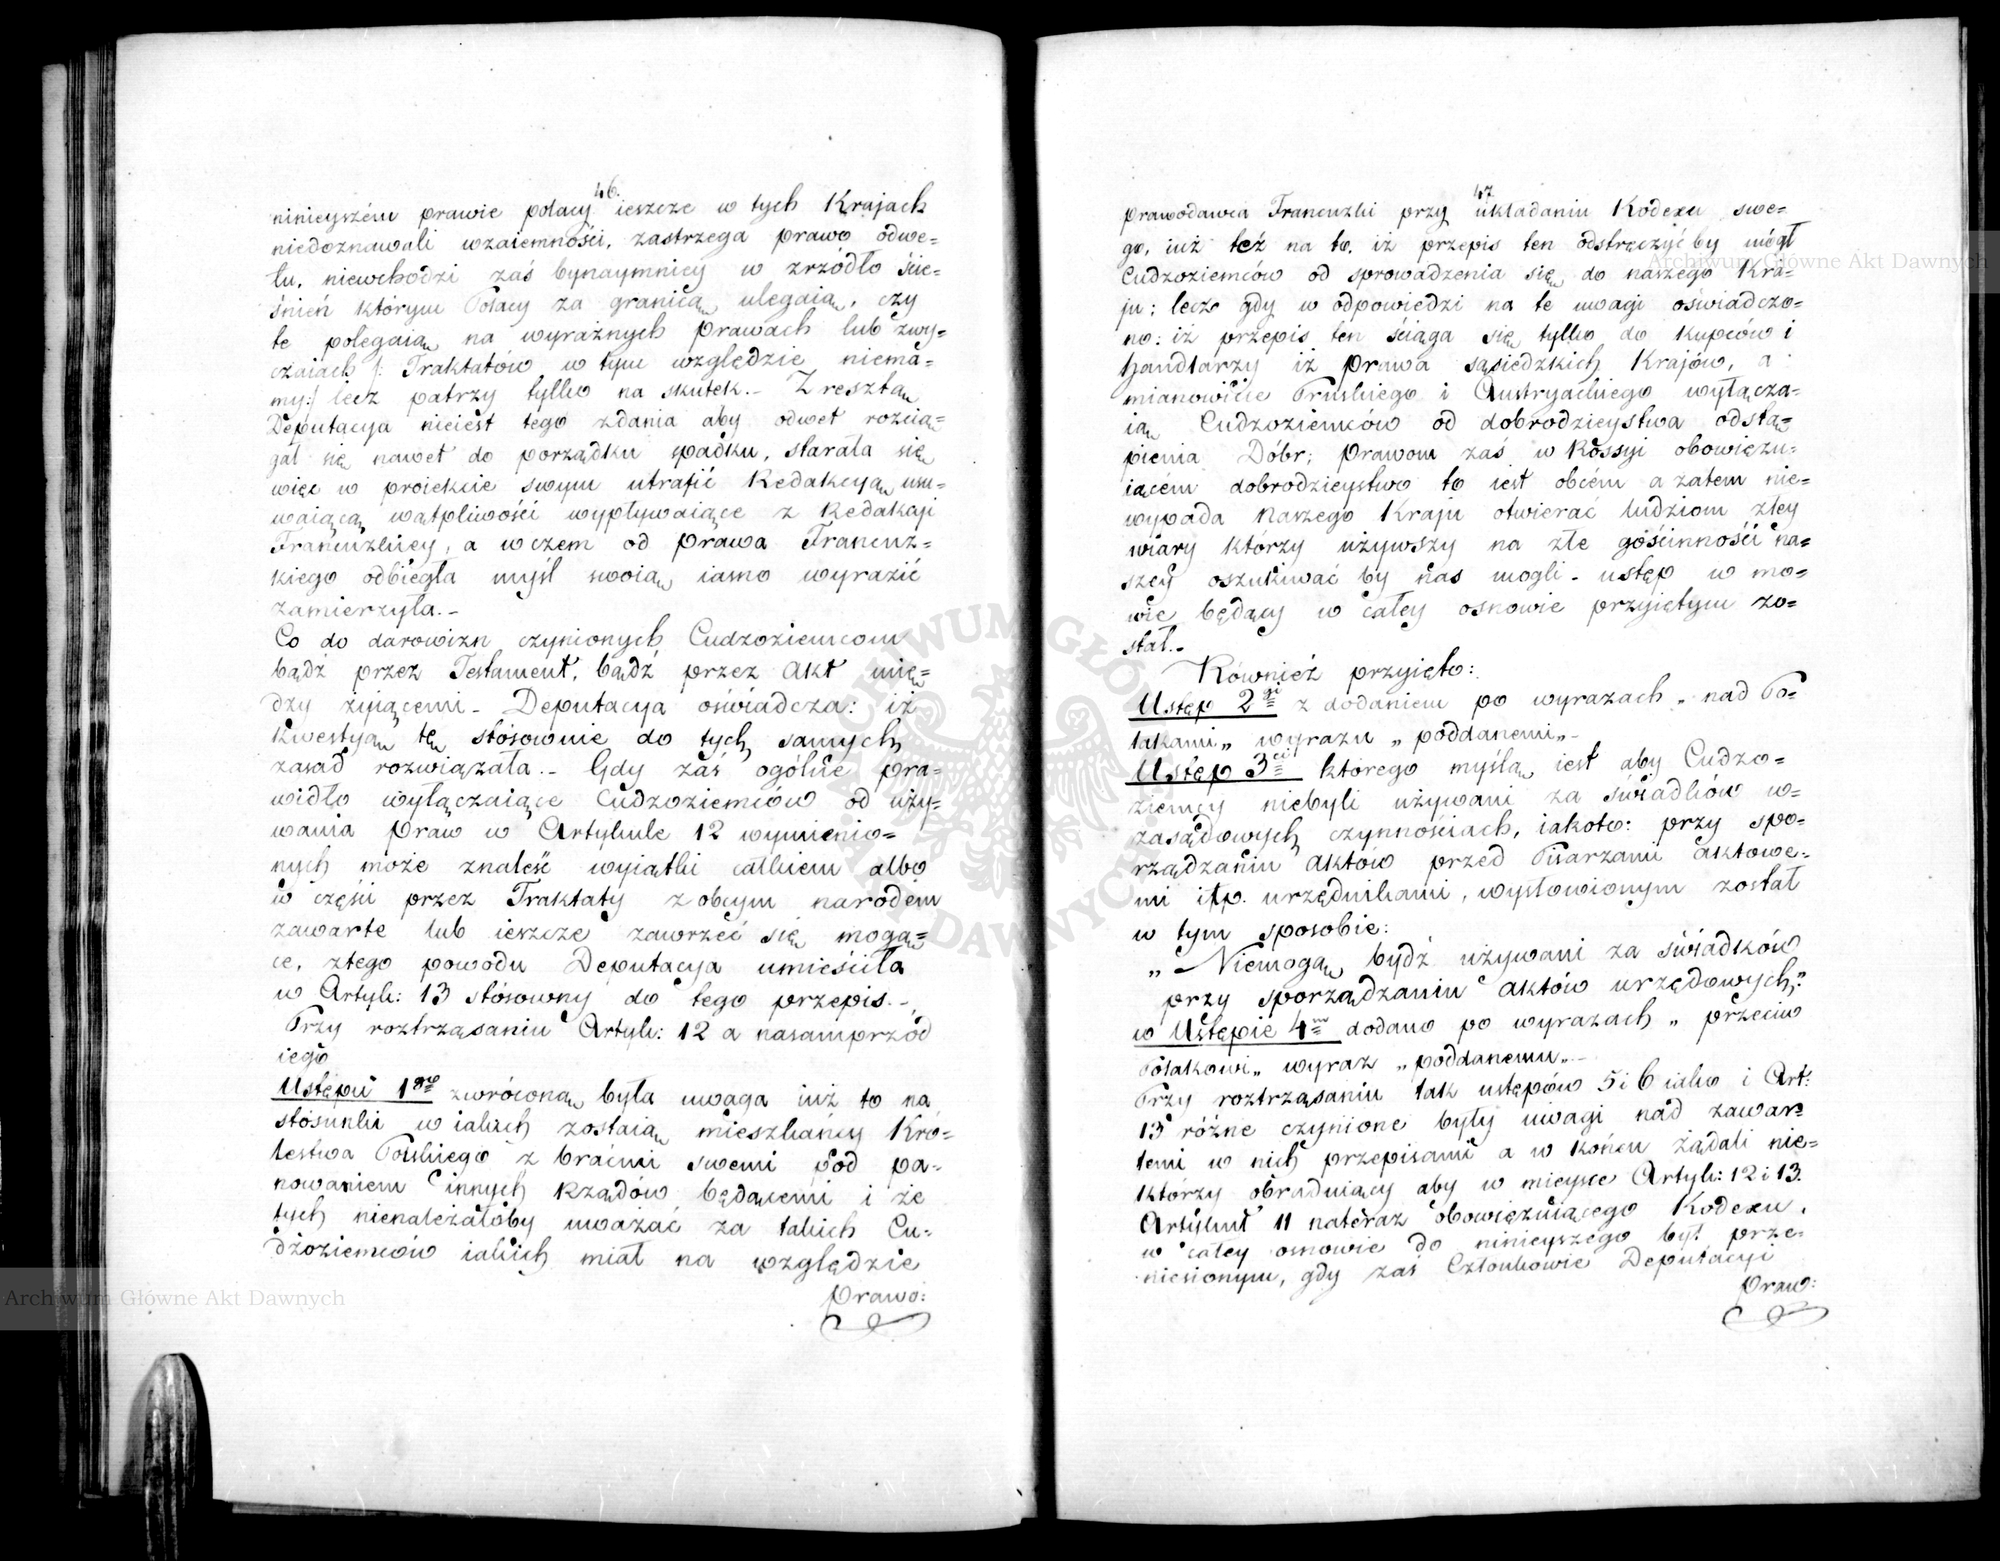 46.
ninieyszém prawie polacy ieszcze w tych Krajach
niedoznawali wzaiemności, zastrzega prawo odwe=
tu, niewchodzi zaś bynaymniey w zrzódło ście=
śnień którym Polacy za granicą ulegaią, czy
te polegaią na wyraźnych prawach lub zwy=
czaiach /: Traktatów w tym względzie niema=
my:/ lecz patrzy tylko na skutek.- Z resztą
Deputacya nieiest tego zdania aby odwet rozcią=
gał się nawet do porządku spadku, starała się
więc w proiekcie swym utrafić Redakcyą usu=
waiącą wątpliwości wypływaiące z Redakcji
Francuzkiey, a w czem od prawa Francuz=
kiego odbiegła myśl swoią iasno wyrazić
zamierzyła.-
Co do darowizn czynionych Cudzoziemcom
bądź przez Testament, bądź przez Akt mię=
dzy żyiącemi - Deputacya oświadcza: iż
kwestyą tę stósownie do tych samych
zasad rozwiązała.- Gdy zaś ogólne pra=
widło wyłączaiące Cudzoziemców od uży=
wania Praw w Artykule 12 wymienio=
nych może znaleść wyiątki całkiem albo
w części przez Traktaty z obcym narodem
zawarte lub ieszcze zawrzeć się mogą=
ce, ztego powodu Deputacya umieściła
w Artyk: 13 stósowny do tego przepis.-
Przy roztrząsaniu Artyk: 12 a nasamprzód
iego
Ustępu 1go zwróconą była uwaga iuż to na
stósunki w iakich zostaią mieszkańcy Kró=
lestwa Polskiego z braćmi swemi pod pa=
nowaniem innych Rządów będącemi i że
tych nienależałoby uważać za takich Cu=
dzoziemców iakich miał na względzie
Prawo:
47
prawodawca Francuzki przy układaniu Kodexu swe=
go, iuż też na to, iż przepis ten odstręczyć by mógł
Cudzoziemców od sprowadzenia się do naszego Kra=
ju: lecz gdy w odpowiedzi na te uwagi oświadczo=
no: iż przepis ten ściąga się tylko do kupców i
handlarzy iż Prawa sąsiedzkich Krajów, a
mianowicie Pruskiego i Austryackiego wyłącza=
ią Cudzoziemców od dobrodzieystwa odstą=
pienia Dóbr; Prawom zaś w Rossyi obowięzu=
iącém dobrodzieystwo to iest obcém a zatem nie=
wypada Naszego Kraju otwierać ludziom złey
wiary którzy używszy na złe gościnności na=
szey oszukiwać by nas mogli - ustęp w mo=
wie będący w całey osnowie przyiętym zo=
stał.-
Również przyięto:
Ustęp 2gi z dodaniem po wyrazach „nad Po=
lakami„ wyrazu „poddanemi„-
Ustęp 3ci którego myślą iest aby Cudzo=
ziemcy niebyli używani za świadków w=
zasądowych czynnościach, iakoto: przy spo=
rządzaniu aktów przed Pisarzami aktowe=
mi itp. urzędnikami, wysłowionym został
w tym sposobie:
„Niemogą bydź używani za świadków
przy sporządzaniu aktów urzędowych„
w Ustępie 4m dodano po wyrazach „przeciw
Polakowi„ wyraz „poddanemu„-
Przy roztrząsaniu tak ustępów 5 i 6 iako i Art:
13 różne czynione były uwagi nad zawar=
temi w nich przepisami a w końcu żądali nie=
którzy obraduiący aby w mieysce Artyk: 12 i 13.
Artykuł 11 nateraz obowięzuiącego Kodexu,
w całey osnowie do ninieyszego był prze=
niesionym, gdy zaś Członkowie Deputacyi
Praw:
Archiwum Główne Akt Dawnych
Archiwum Główne Akt Dawnych
ARCHIWUM GŁÓWNE AKT DAWNYCH